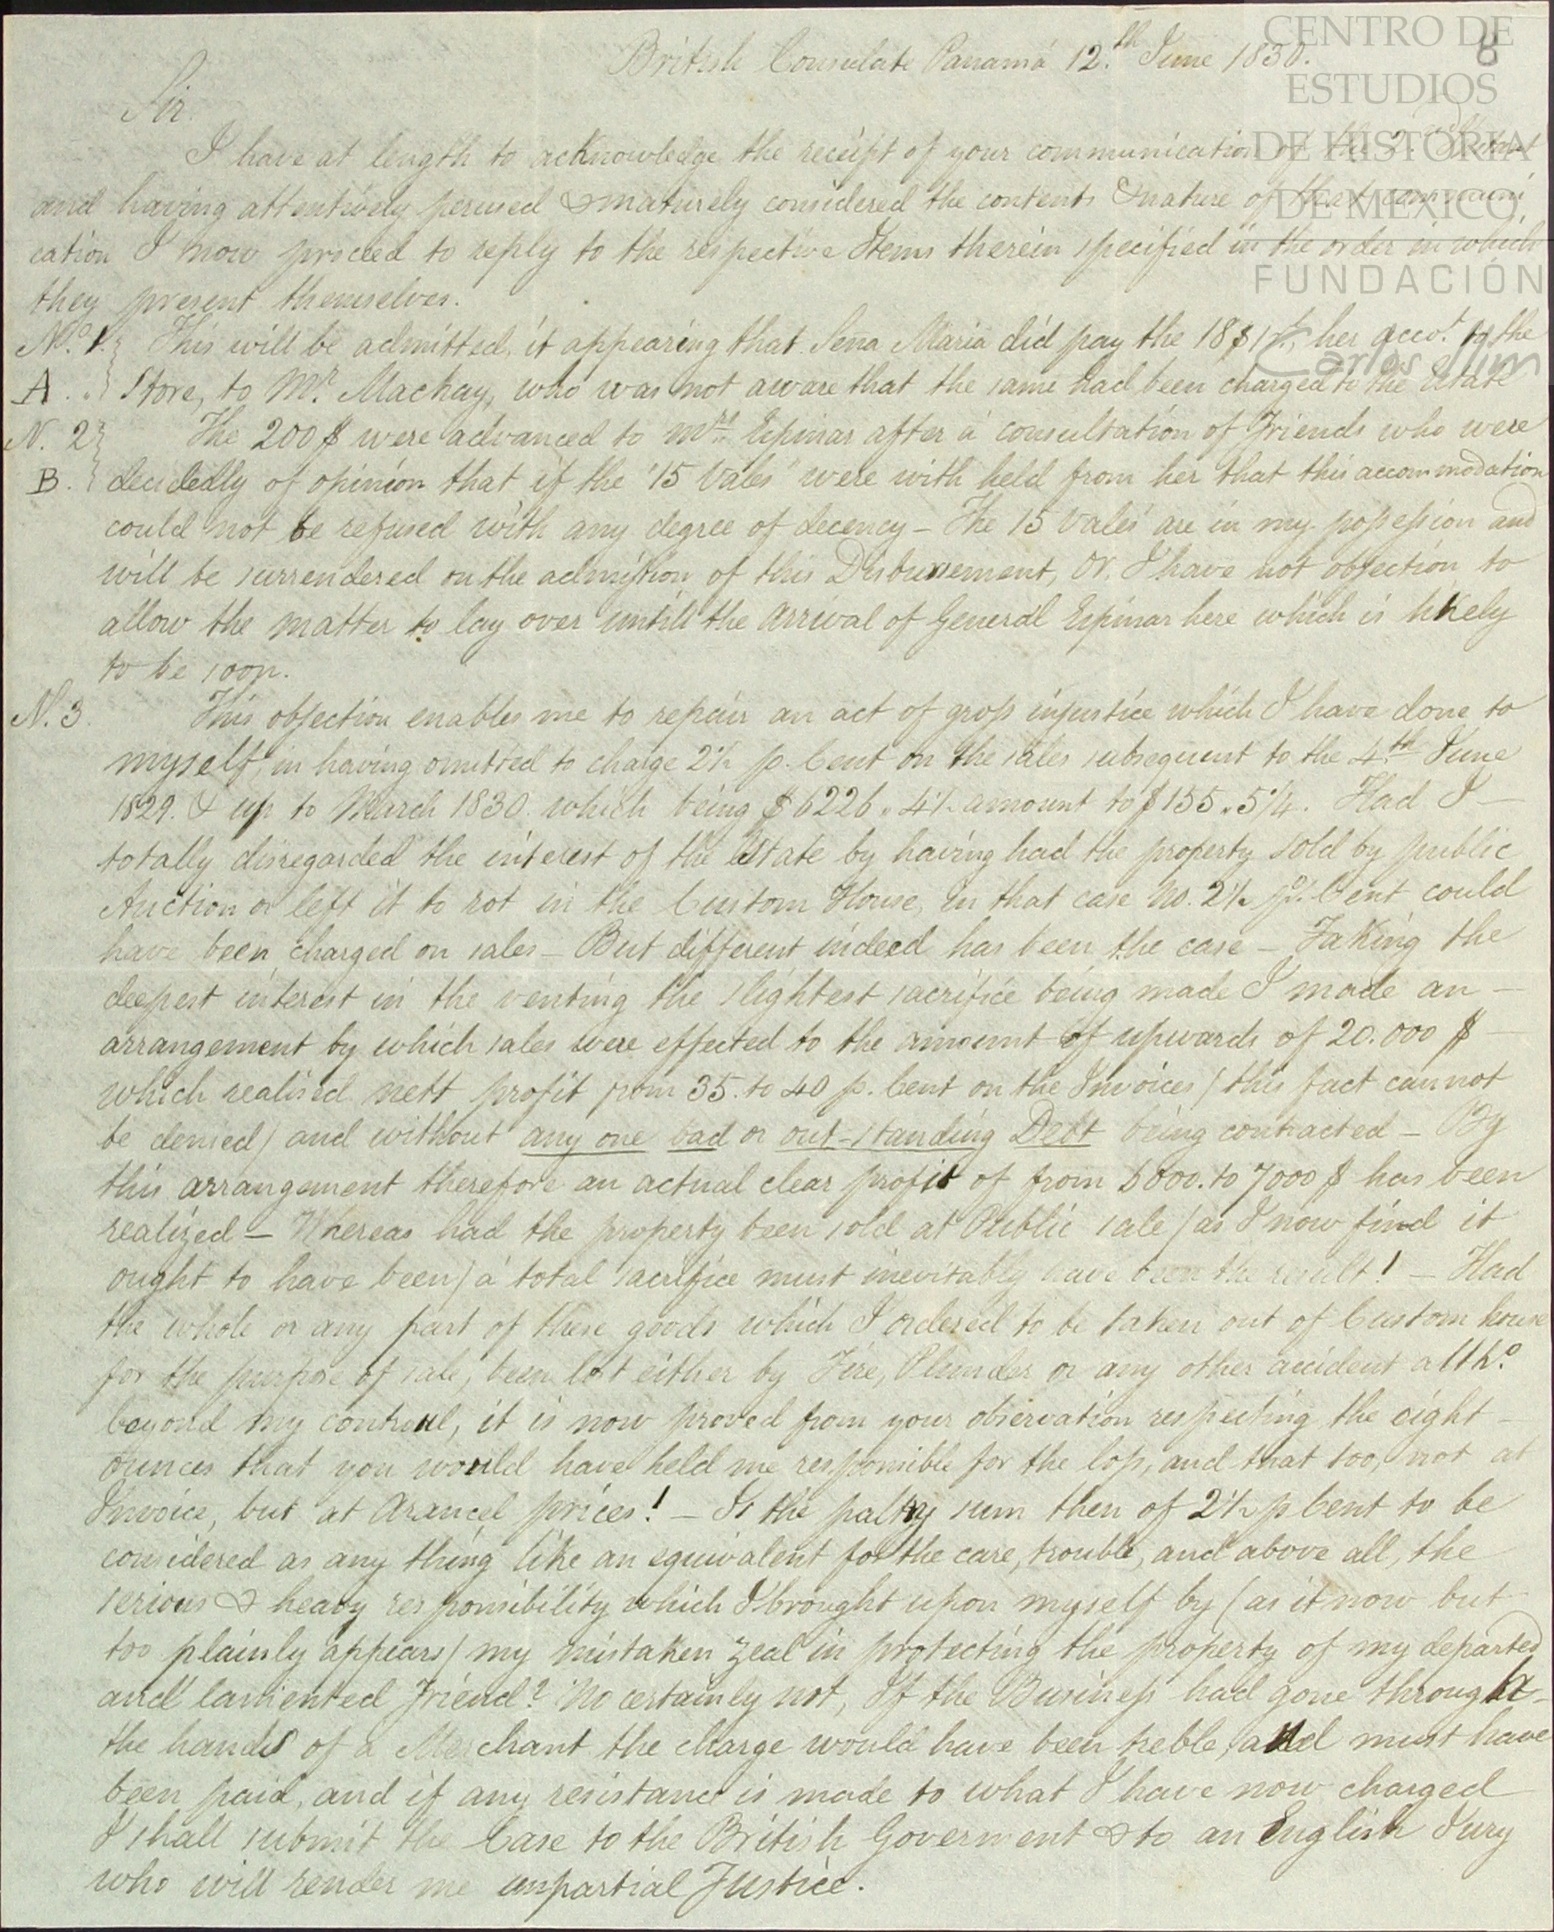 CENTRO DE
ESTUDIOS
DE HISTORIA
DE MEXICO,
FUNDACIÓN
Carlos Slim
8
British Consulate Panamá 12.th June 1830.
Sir.
I have at length to acknowledge the receipt of your communication of the 2.
and having attentively perused & maturely considered the contents & nature of that communi
cation I now proceed to reply to the respective Items therein specified in the order in which
they present themselves.
No. 1. This will be admitted, it appearing that Sena Maria did pay the 18$ her accot. to the
A. Store, to Mr. Mackay, who was not aware that the same had been charged to the Estate
N. 2 The 200 $ were advanced to Mrs. Espinar after a consultation of Friends who were
B. decidedly of opinion that if the "15 Vales" were with held from her that this accommodation
could not be refused with any degree of decency – The 15 Vales are in my possession and
will be surrendered on the admission of this Disbursement, or. I have not objection to
allow the matter to lay over untill the arrival of General Espinar here which is likely
to be soon.
N. 3. This objection enables me to repair an act of gross injustice which I have done to
myself, in having omitted to charge 2½ p. Cent on the sales subsequent to the 4th June
1829. & up to March 1830. which being $ 6226.4½ amount to $ 155.5¼. Had I –
totally disregarded the interest of the Estate by having had the property sold by public
Auction or left it to rot in the Custom House, in that case No. 2½ p. Cent could
have been charged on sales – But different indeed has been the case – Taking the
deepest interest in the venting the slightest sacrifice being made I made an –
arrangement by which sales were effected to the amount of upwards of 20.000 $ –
which realised nett profit from 35. to 40 p. Cent on the Invoices (this fact cannot
be denied) and without any one bad or out-standing Debt being contracted – By
this arrangement therefore an actual clear profit of from 6000. to 7000 $ has been
realized – Whereas had the property been sold at Public sale (as I now find it
ought to have been) a total sacrifice must inevitably have been the result! – Had
the whole or any part of these goods which I ordered to be taken out of Custom house
for the purpose of sale, been lost either by Fire, Plunder or any other accident altho.
beyond my controul, it is now proved from your observation respecting the eight –
ounces that you would have held me responsible for the loss, and that too, not at
Invoice but at Arancel prices! – Is the paltry sum then of 2½ p Cent to be
considered as any thing like an equivalent for the care, trouble, and above all, the
serious & heavy responsibility which I brought upon myself by (as it now but
too plainly appears) my mistaken zeal in protecting the property of my departed
and lamented Friend? No certainly not, If the Business had gone through –
the hands of a Merchant the charge would have been treble, and must have
been paid, and if any resistance is made to what I have now charged
I shall submit the Case to the British Goverment & to an English Jury
who will render me impartial Justice.